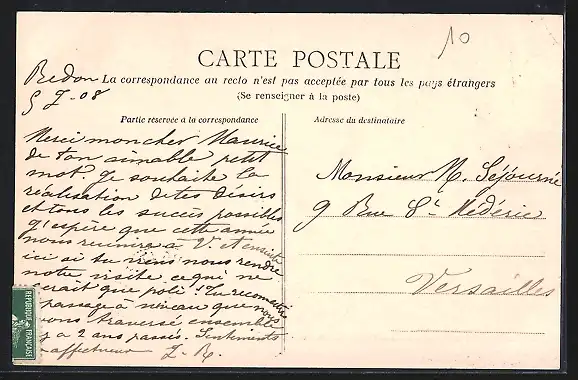 10
CARTE POSTALE
Redon
5 7-08
La correspondance au recto n'est pas acceptée par tous les pays étrangers
(Se renseigner à la poste)
Partie réservée à la correspondance
Merci mon cher Maurice
de ton aimable petit
mot. Je souhaite la
réalisation de tes désirs
et tous les succès possibles
J'espère que cette année
nous réunira à V. et ensuite
ici où tu viens nous rendre
notre visite ce qui ne
serait que poli. Tu reconnaîtras
passage à niveau que nous
avons traversé ensemble
y a 2 ans passés. Sentiments
affectueux
Adresse du destinataire
Monsieur M. Séjourné
9 Rue St Médéric
Versailles
REPUBLIQUE FRANÇAISE